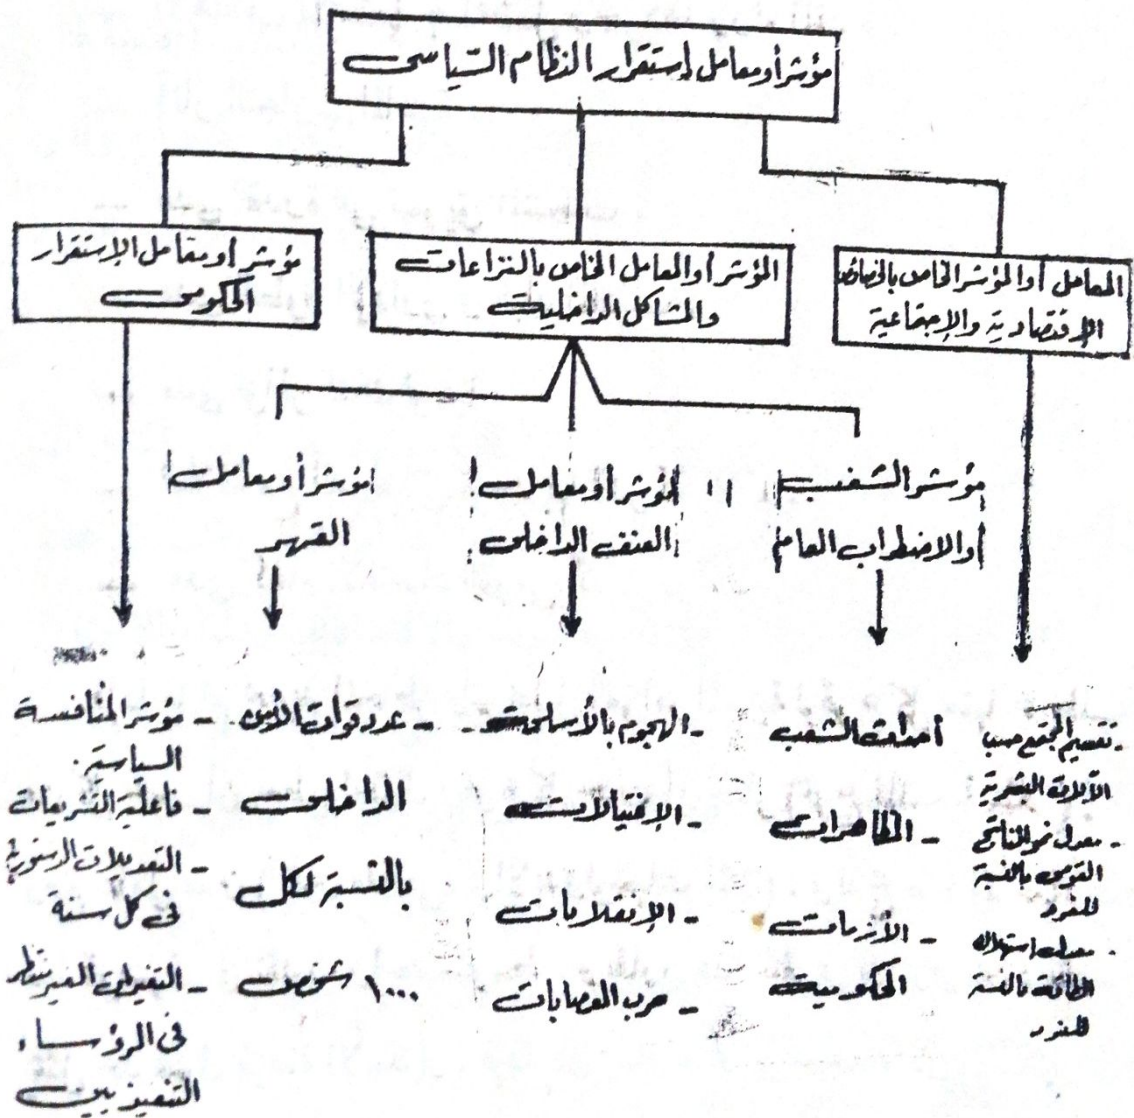 مؤشر أو معامل إستقرار النظام السياسى
المعامل أو المؤشر الخاص بالخصائص
الإقتصادية والإجتماعية
المؤشر أو المعامل الخاص بالنزاعات
والمشاكل الداخلية
مؤشر أو معامل الإستقرار
الحكومى
مؤشر الشغب
أو الاضطراب العام
مؤشر أو معامل
العنف الداخلى
مؤشر أو معامل
القهر
- تقسيم المجتمع حسب
البشرية
- معدل نمو الناتج
القومى بالنسبة
للفرد
- معدل استهلاك
الطاقة بالنسبة
للفرد
أحداث الشغب
- المظاهرات
- الأزمات
الحكومية
- الهجوم بالأسلحة
- الإغتيالات
- الإنقلابات
- حرب العصابات
- عدد قوات الأمن
الداخلى
بالنسبة لكل
١٠٠٠ شخص
- مؤشر المنافسة
السياسية.
- فاعلية التشريعات
- التعديلات الدستورية
فى كل سنة
- التغيرات الغير منتظر
فى الرؤساء
التنفيذيين